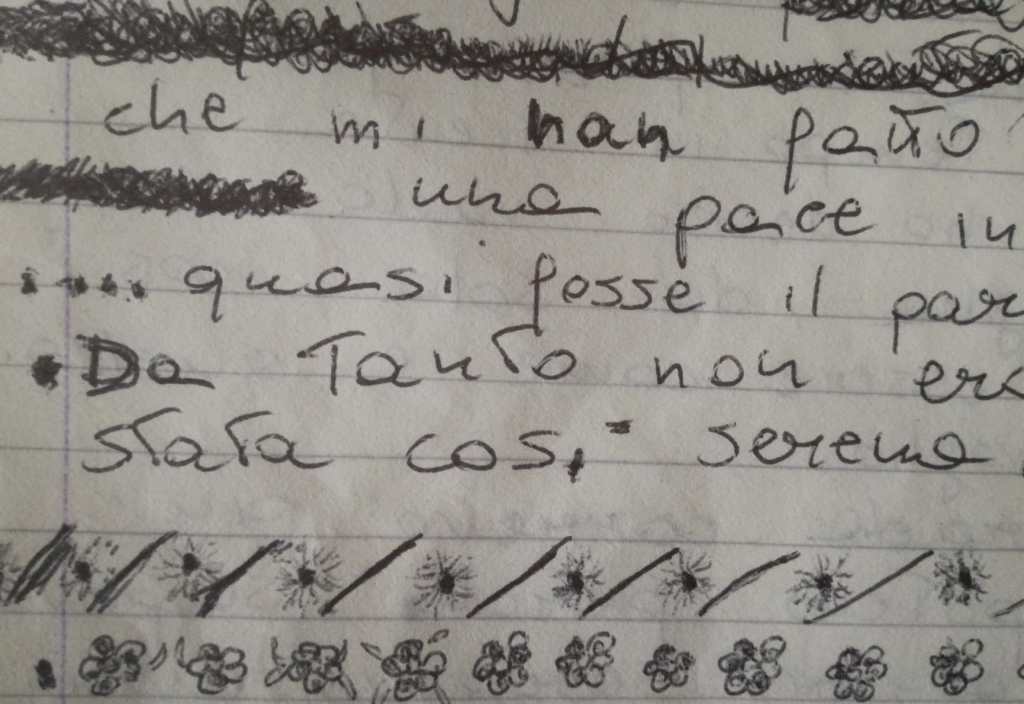 che mi han fatto
una pace in
.... quasi fosse il par
Da Tanto non era
stata così serena